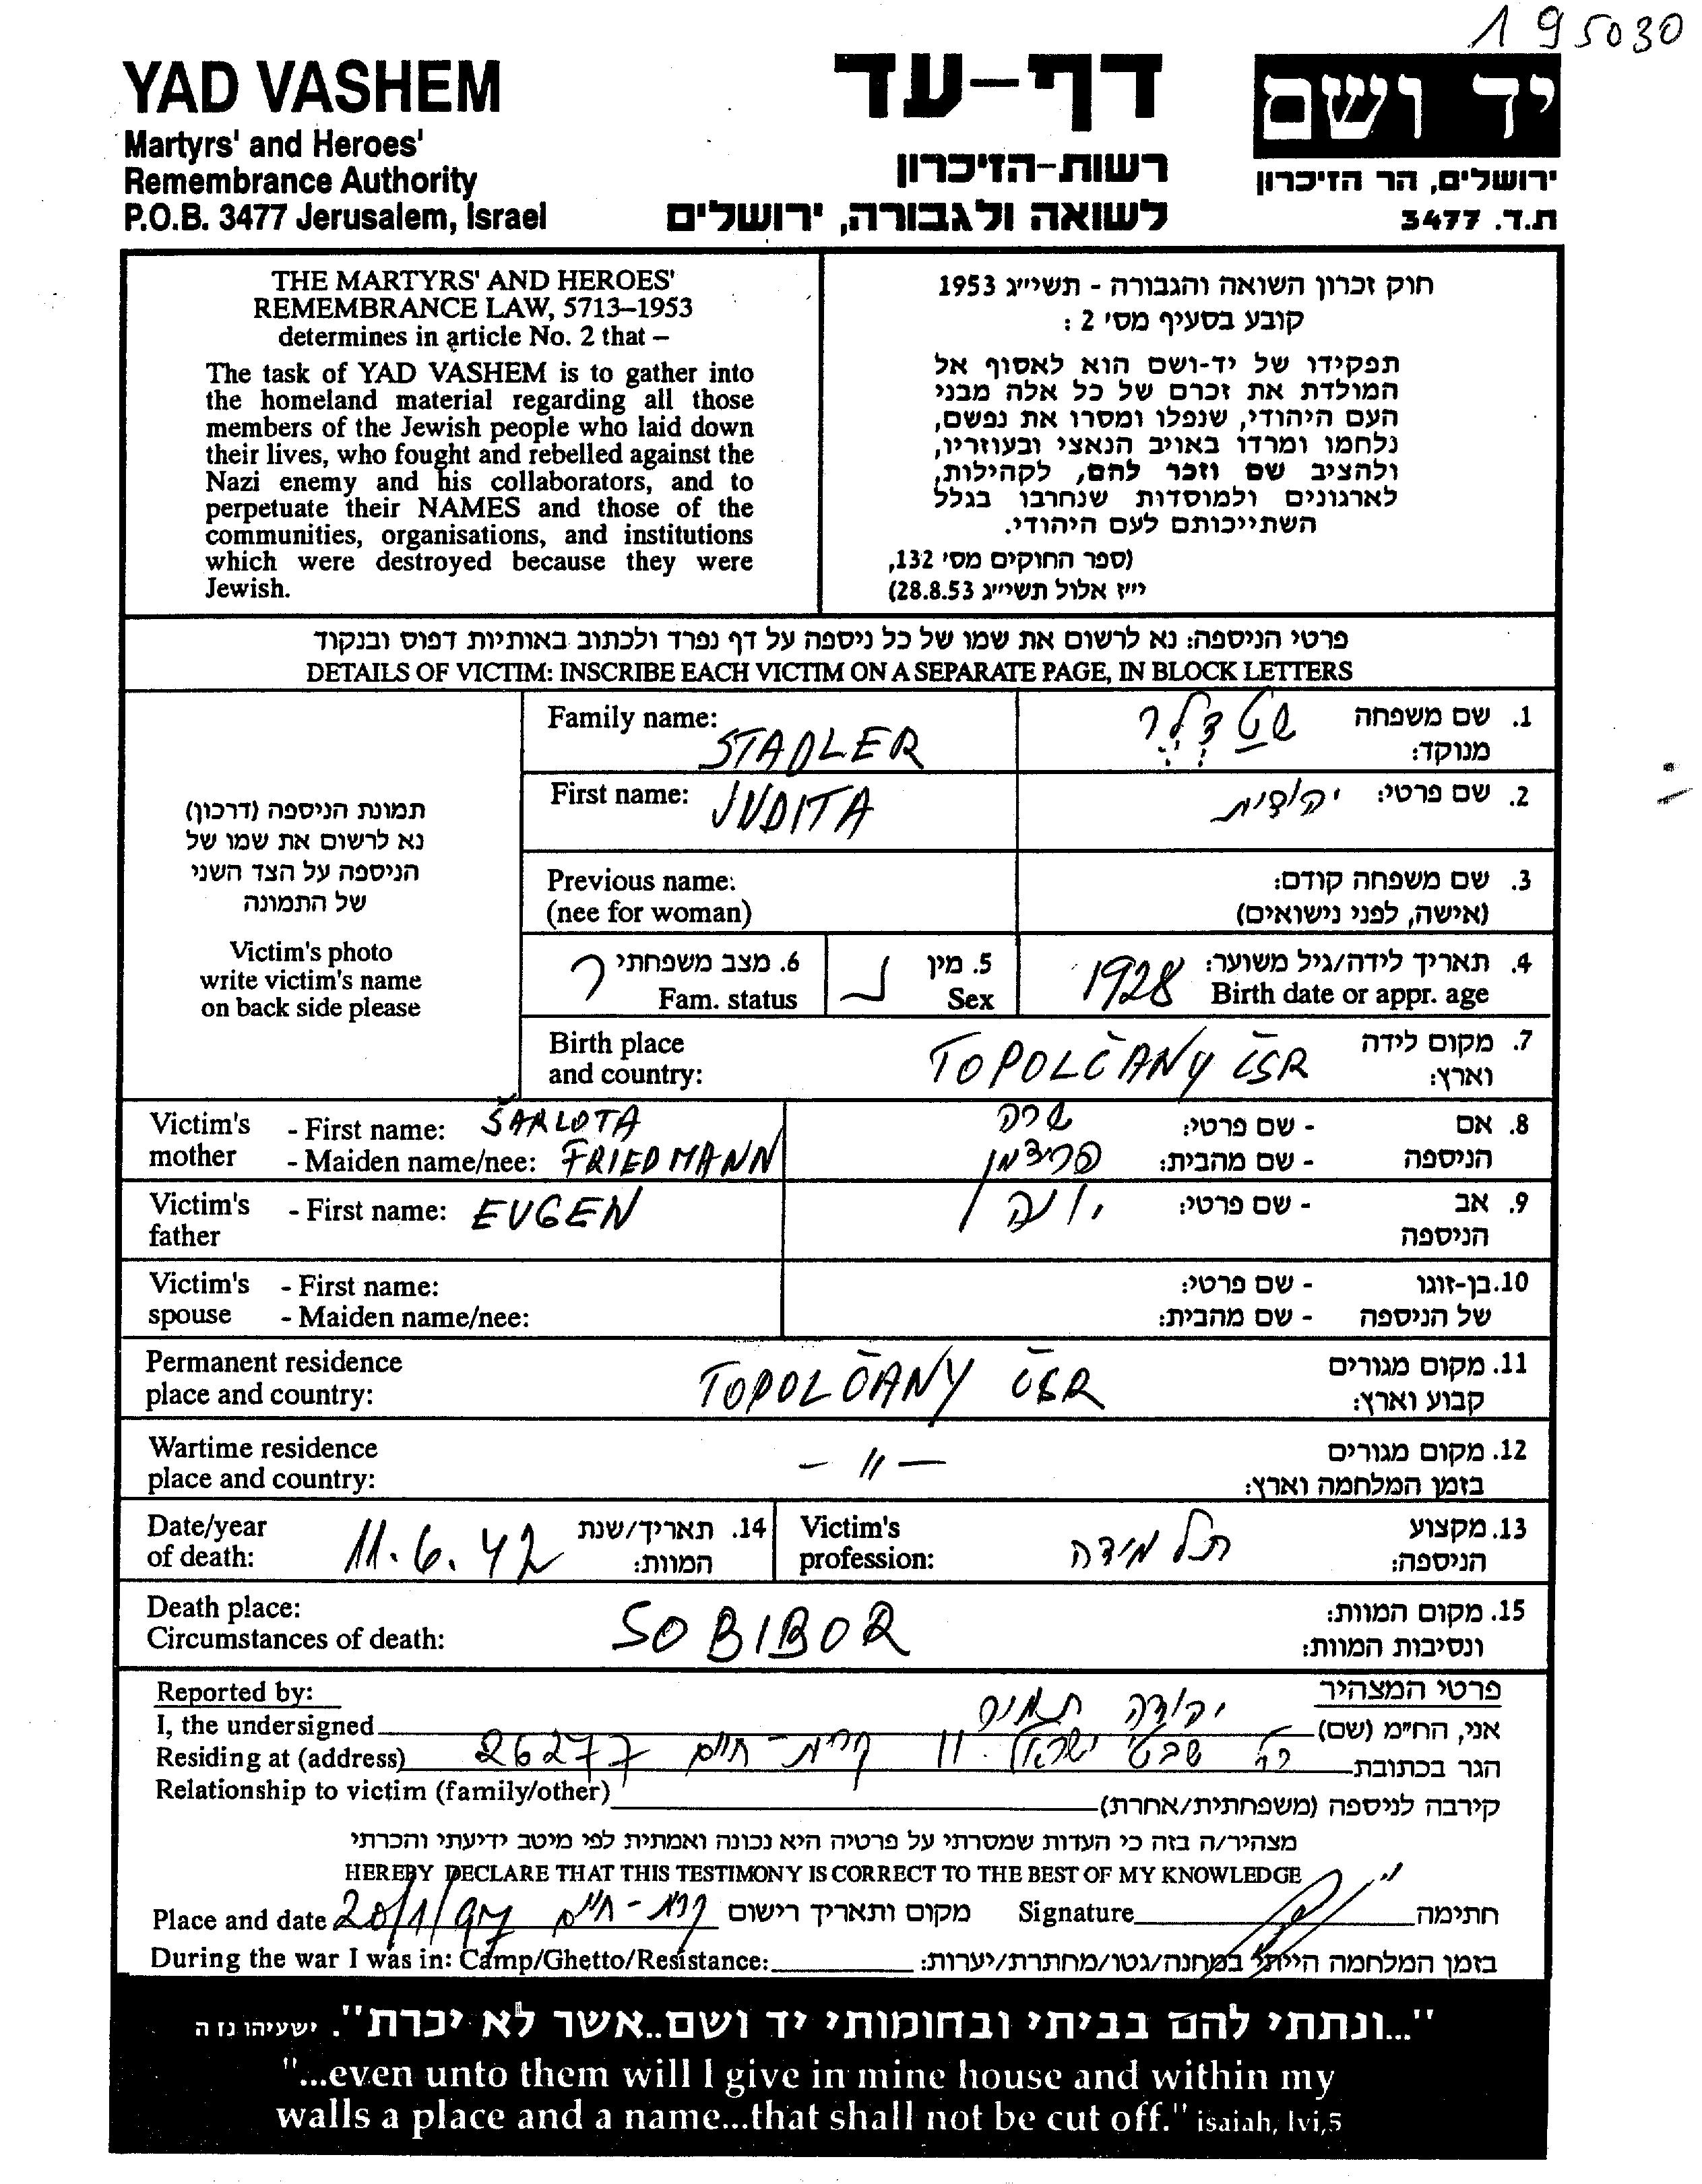 195030
YAD VASHEM
Martyrs' and Heroes'
Remembrance Authority
P.O.B. 3477 Jerusalem, Israel
דף-עד
רשות-הזיכרון
לשואה ולגבורה, ירושלים
יד ושם
ירושלים, הר הזיכרון
ת.ד. 3477
THE MARTYRS' AND HEROES'
REMEMBRANCE LAW, 5713–1953
determines in article No. 2 that –
The task of YAD VASHEM is to gather into
the homeland material regarding all those
members of the Jewish people who laid down
their lives, who fought and rebelled against the
Nazi enemy and his collaborators, and to
perpetuate their NAMES and those of the
communities, organisations, and institutions
which were destroyed because they were
Jewish.
חוק זכרון השואה והגבורה - תשי״ג 1953
קובע בסעיף מס' 2 :
תפקידו של יד-ושם הוא לאסוף אל
המולדת את זכרם של כל אלה מבני
העם היהודי, שנפלו ומסרו את נפשם,
נלחמו ומרדו באויב הנאצי ובעוזריו,
ולהציב שם וזכר להם, לקהילות,
לארגונים ולמוסדות שנחרבו בגלל
השתייכותם לעם היהודי.
(ספר החוקים מס' 132,
י״ז אלול תשי״ג 28.8.53)
פרטי הניספה: נא לרשום את שמו של כל ניספה על דף נפרד ולכתוב באותיות דפוס ובנקוד
DETAILS OF VICTIM: INSCRIBE EACH VICTIM ON A SEPARATE PAGE, IN BLOCK LETTERS
תמונת הניספה (דרכון)
נא לרשום את שמו של
הניספה על הצד השני
של התמונה
Victim's photo
write victim's name
on back side please
Family name: STADLER שטדלר 1. שם משפחה
מנוקד:
First name: JUDITA יהודית 2. שם פרטי:
Previous name: 3. שם משפחה קודם:
(nee for woman) (אישה, לפני נישואים)
6. מצב משפחתי ר 5. מין נ 4. תאריך לידה/גיל משוער: 1928
Fam. status Sex Birth date or appr. age
Birth place TOPOLČANY ČSR 7. מקום לידה
and country: וארץ:
Victim's - First name: ŠARLOTA שרה - שם פרטי: 8. אם
mother - Maiden name/nee: FRIEDMANN פרידמן - שם מהבית: הניספה
Victim's - First name: EUGEN יונה - שם פרטי: 9. אב
father הניספה
Victim's - First name: - שם פרטי: 10. בן-זוגו
spouse - Maiden name/nee: - שם מהבית: של הניספה
Permanent residence TOPOLČANY ČSR 11. מקום מגורים
place and country: קבוע וארץ:
Wartime residence - 〃 - 12. מקום מגורים
place and country: בזמן המלחמה וארץ:
Date/year 11.6.42 14. תאריך/שנת Victim's תלמידה 13. מקצוע
of death: המוות: profession: הניספה:
Death place: SOBIBOR 15. מקום המוות:
Circumstances of death: ונסיבות המוות:
Reported by: פרטי המצהיר
I, the undersigned יהודה תמיר אני, הח״מ (שם)
Residing at (address) שבטי ישראל 11 קרית-חיים 26277 הגר בכתובת
Relationship to victim (family/other) קירבה לניספה (משפחתית/אחרת)
מצהיר/ה בזה כי העדות שמסרתי על פרטיה היא נכונה ואמתית לפי מיטב ידיעתי והכרתי
HEREBY DECLARE THAT THIS TESTIMONY IS CORRECT TO THE BEST OF MY KNOWLEDGE
Place and date 20/1/97 קרית-חיים מקום ותאריך רישום Signature חתימה
During the war I was in: Camp/Ghetto/Resistance: בזמן המלחמה הייתי במחנה/גטו/מחתרת/יערות:
"...ונתתי להם בביתי ובחומותי יד ושם..אשר לא יכרת". ישעיהו נו ה
"...even unto them will I give in mine house and within my
walls a place and a name...that shall not be cut off." isaiah, lvi,5